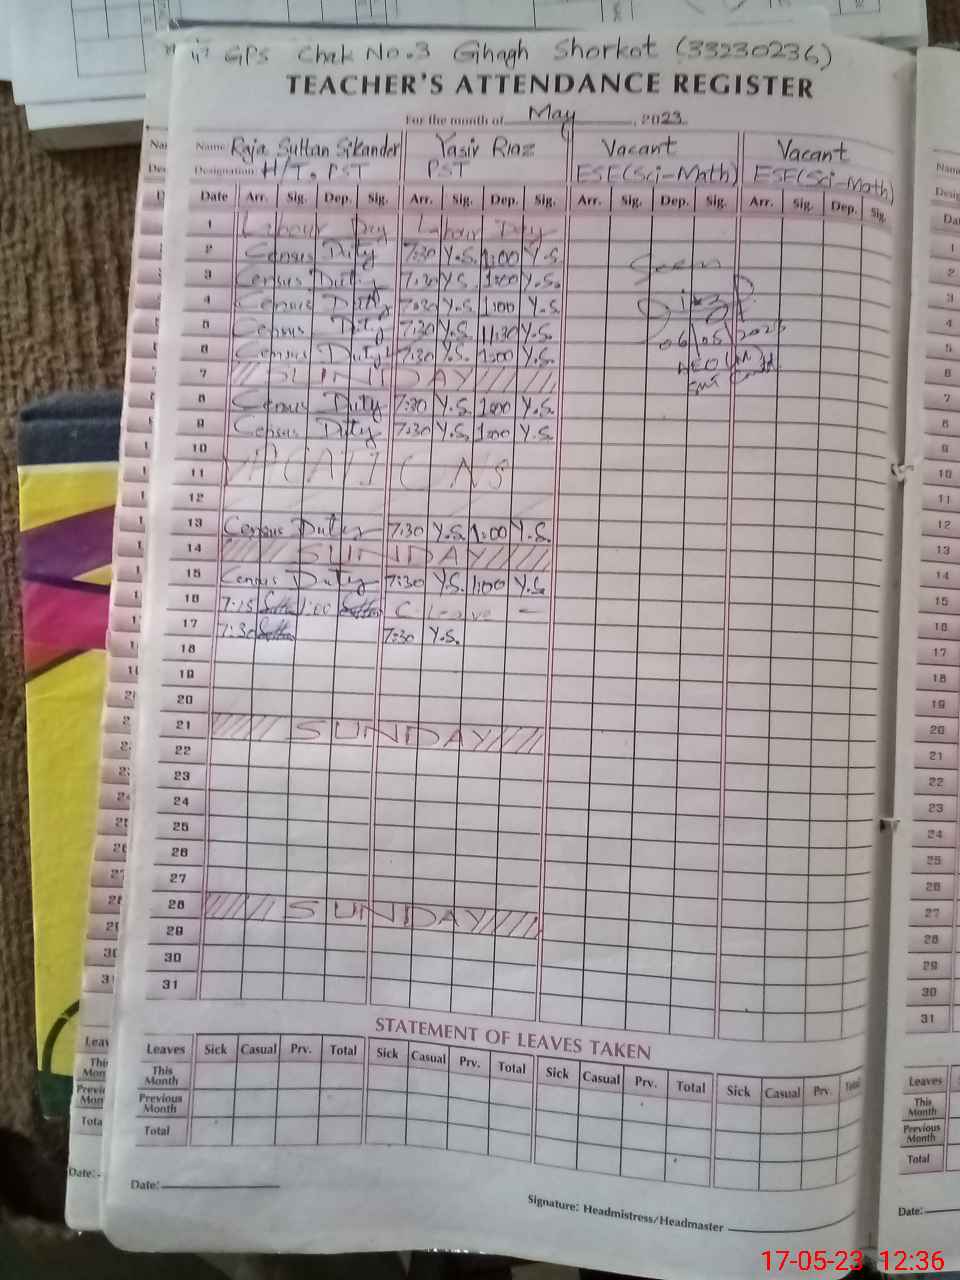 GPS Chak No.3 Ghagh Shorkot (33230236)
TEACHER'S ATTENDANCE REGISTER
For the month of May, 2023
Name Raja Sultan Sikander Yasir Riaz Vacant Vacant
Designation H/T, PST PST ESE(Sci-Math) ESE(Sci-Math)
Date Arr. Sig. Dep. Sig. Arr. Sig. Dep. Sig. Arr. Sig. Dep. Sig. Arr. Sig. Dep. Sig.
1 Labour Day Labour Day
2 Census Duty 7:30 Y.S. 1:00 Y.S.
3 Census Duty 7:30 Y.S. 1:00 Y.S.
4 Census Duty 7:30 Y.S. 1:00 Y.S.
5 Census Duty 7:30 Y.S. 11:30 Y.S.
6 Census Duty 7:30 Y.S. 1:00 Y.S.
7 SUNDAY
8 Census Duty 7:30 Y.S. 1:00 Y.S.
9 Census Duty 7:30 Y.S. 1:00 Y.S.
10
11 VACATIONS
12
13 Census Duty 7:30 Y.S. 1:00 Y.S.
14 SUNDAY
15 Census Duty 7:30 Y.S. 1:00 Y.S.
16 7:15 1:00 C. Leave
17 7:30 7:30 Y.S.
18
19
20
21 SUNDAY
22
23
24
25
26
27
28 SUNDAY
29
30
31
Seen
06/05/2023
STATEMENT OF LEAVES TAKEN
Leaves Sick Casual Prv. Total Sick Casual Prv. Total Sick Casual Prv. Total Sick Casual Prv. Total
This Month
Previous Month
Total
Date:
Signature: Headmistress/Headmaster
17-05-23 12:36